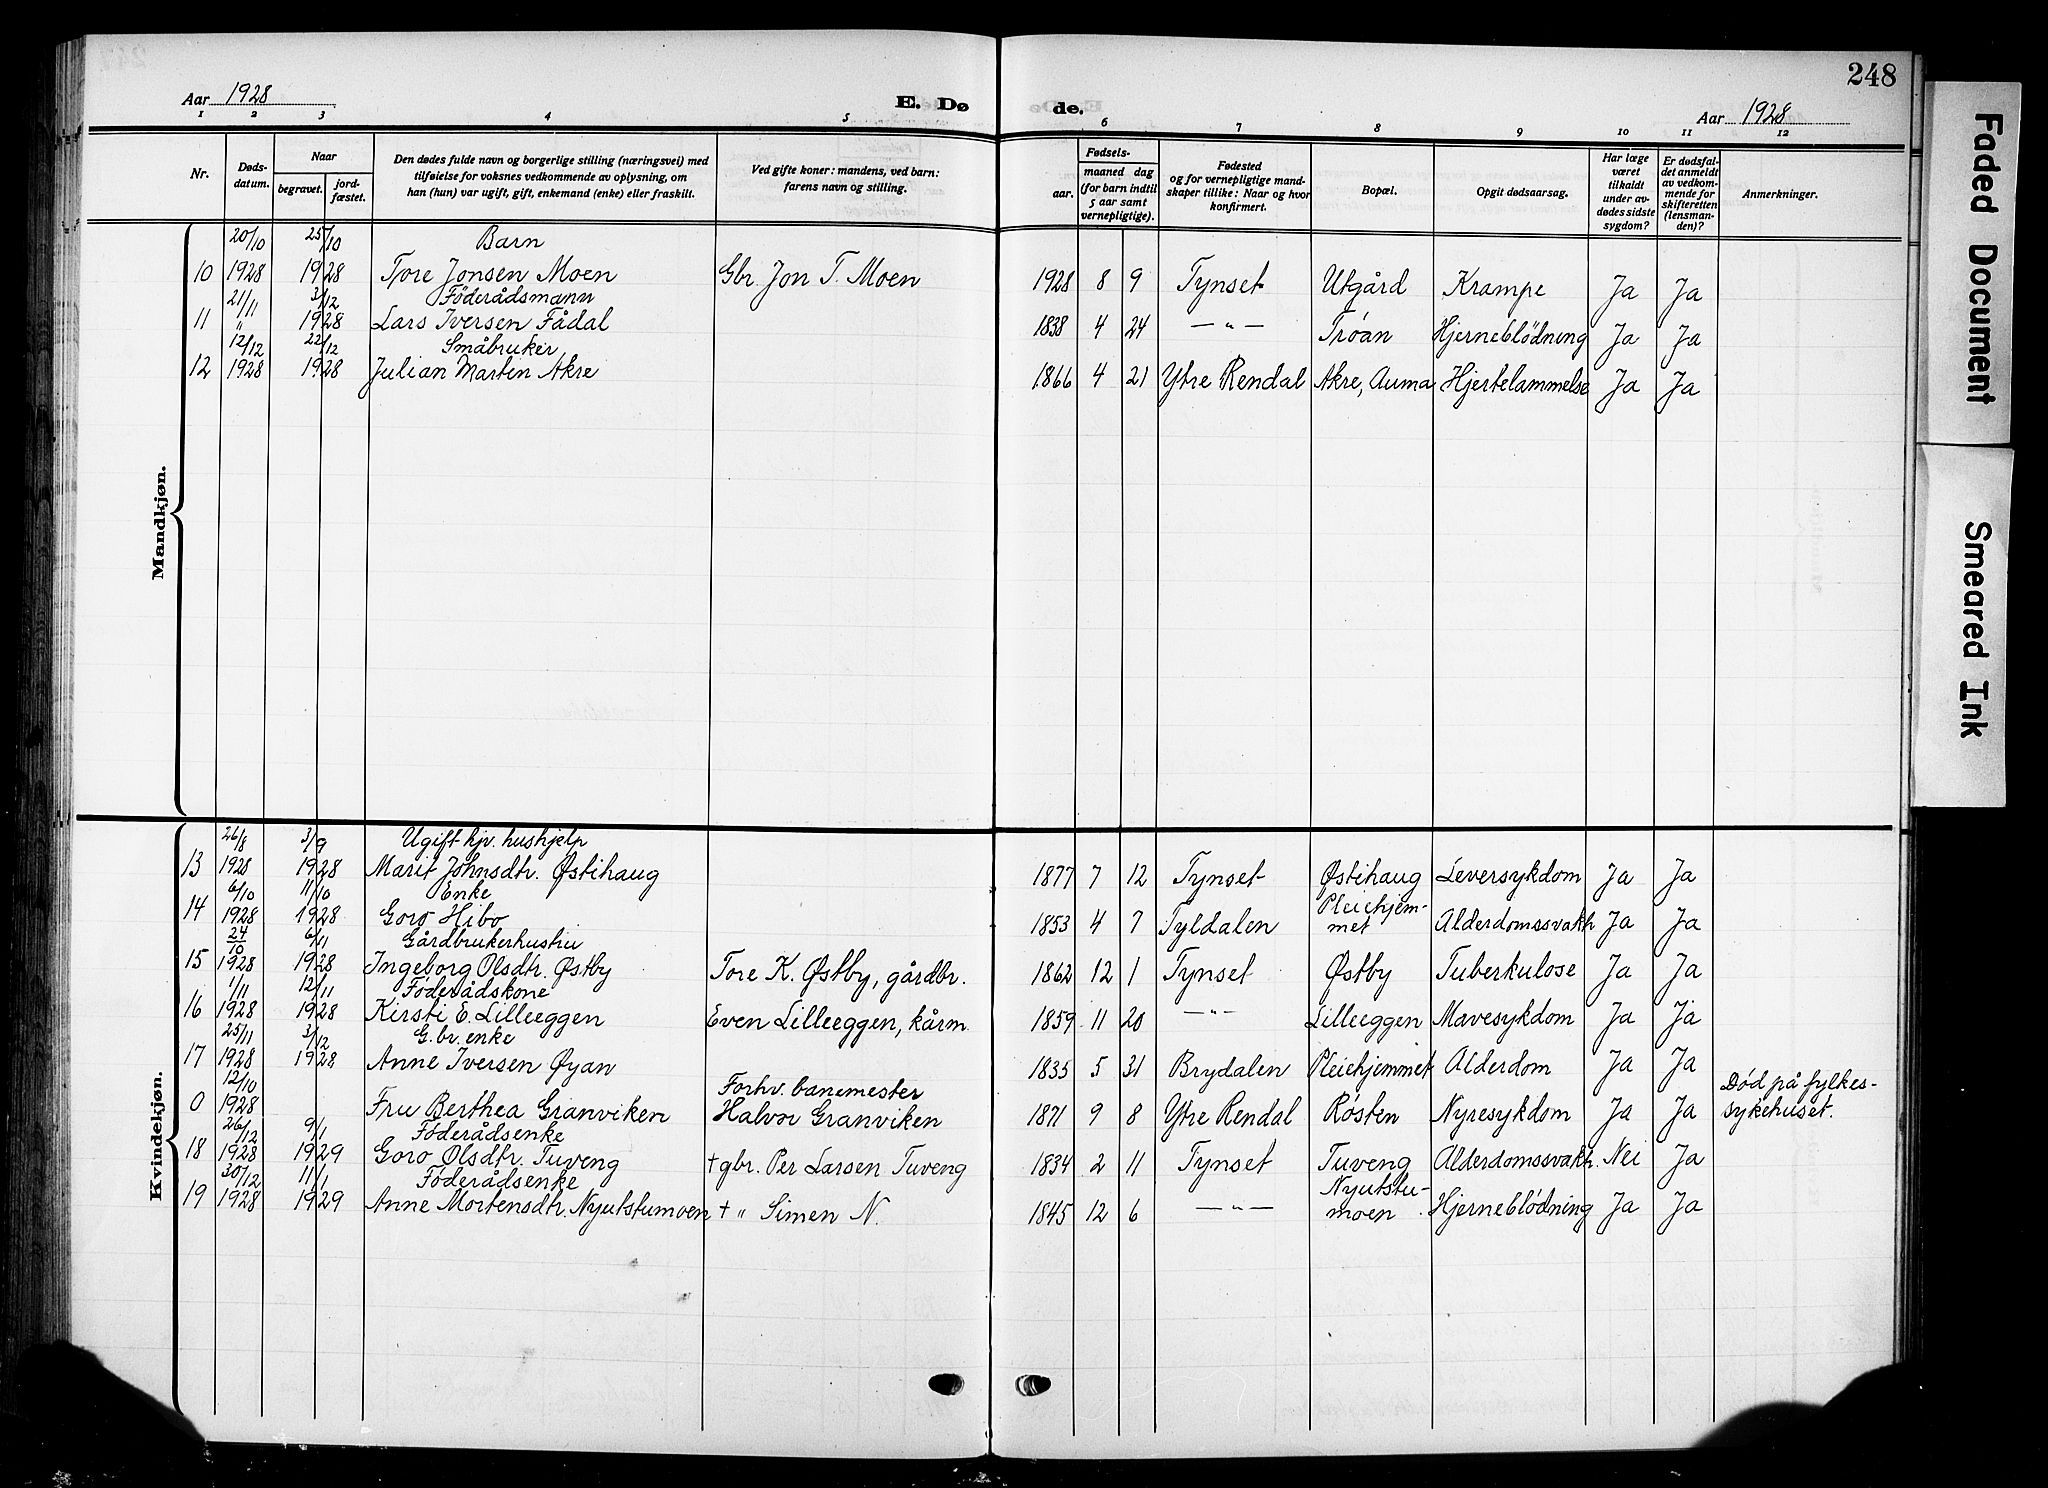 248
Aar 1928
E. Dø
de.
Aar 1928
1 2 3 4 5 6 7 8 9 10 11 12
Nr.
Døds-
datum.
Naar
begravet.
jord-
fæstet.
Den dødes fulde navn og borgerlige stilling (næringsvei) med
tilføielse for voksnes vedkommende av oplysning, om
han (hun) var ugift, gift, enkemand (enke) eller fraskilt.
Ved gifte koner: mandens, ved barn:
farens navn og stilling.
Fødsels-
aar.
maaned dag
(for barn indtil
5 aar samt
vernepligtige).
Fødested
og for vernepligtige mand-
skaper tillike: Naar og hvor
konfirmert.
Bopæl.
Opgit dødsaarsag.
Har læge
været
tilkaldt
under av-
dødes sidste
sygdom?
Er dødsfal-
det anmeldt
av vedkom-
mende for
skifteretten
(lensman-
den)?
Anmerkninger.
Mandkjøn.
20/10 25/10 Barn
10 1928 1928 Tore Jonsen Moen Gbr. Jon T. Moen 1928 8 9 Tynset Utgård Krampe Ja Ja
21/11 3/12 Föderådsmann
11 " 1928 Lars Iversen Fådal 1838 4 24 —"— Tröan Hjerneblödning Ja Ja
12/12 22/12 Småbruker
12 1928 1928 Julian Martin Akre 1866 4 21 Ytre Rendal Akre, Auma Hjertelammelse Ja Ja
Kvindekjøn.
26/8 3/9 Ugift hjv. hushjelp
13 1928 1928 Marit Johnsdtr. Østihaug 1877 7 12 Tynset Østihaug Leversykdom Ja Ja
6/10 11/10 Enke Pleiehjem-
14 1928 1928 Goro Hibo 1853 4 7 Tyldalen met Alderdomssvakh Ja Ja
24/10 6/11 Gårdbrukerhustru
15 1928 1928 Ingeborg Olsdtr. Østby Tore K. Østby, gårdbr. 1862 12 1 Tynset Østby Tuberkulose Ja Ja
1/11 12/11 Föderådskone
16 1928 1928 Kirsti E. Lilleeggen Even Lilleeggen, kårm. 1859 11 20 —"— Lilleeggen Mavesykdom Ja Ja
25/11 3/12 G.br. enke
17 1928 1928 Anne Iversen Øyan 1835 5 31 Brydalen Pleiehjemmet Alderdom Ja Ja
12/10 Forhv. banemester Död på fylkes-
0 1928 Fru Berthea Granviken Halvor Granviken 1871 9 8 Ytre Rendal Røsten Nyresykdom Ja Ja sykehuset.
26/12 9/1 Föderådsenke
18 1928 1929 Goro Olsdtr. Tuveng + gbr. Per Larsen Tuveng 1834 2 11 Tynset Tuveng Alderdomssvakh. Nei Ja
30/12 11/1 Föderådsenke Nyutstu-
19 1928 1929 Anne Mortensdtr. Nyutstumoen + " Simen N. 1845 12 6 —"— moen Hjerneblödning Ja Ja
Faded Document
Smeared Ink